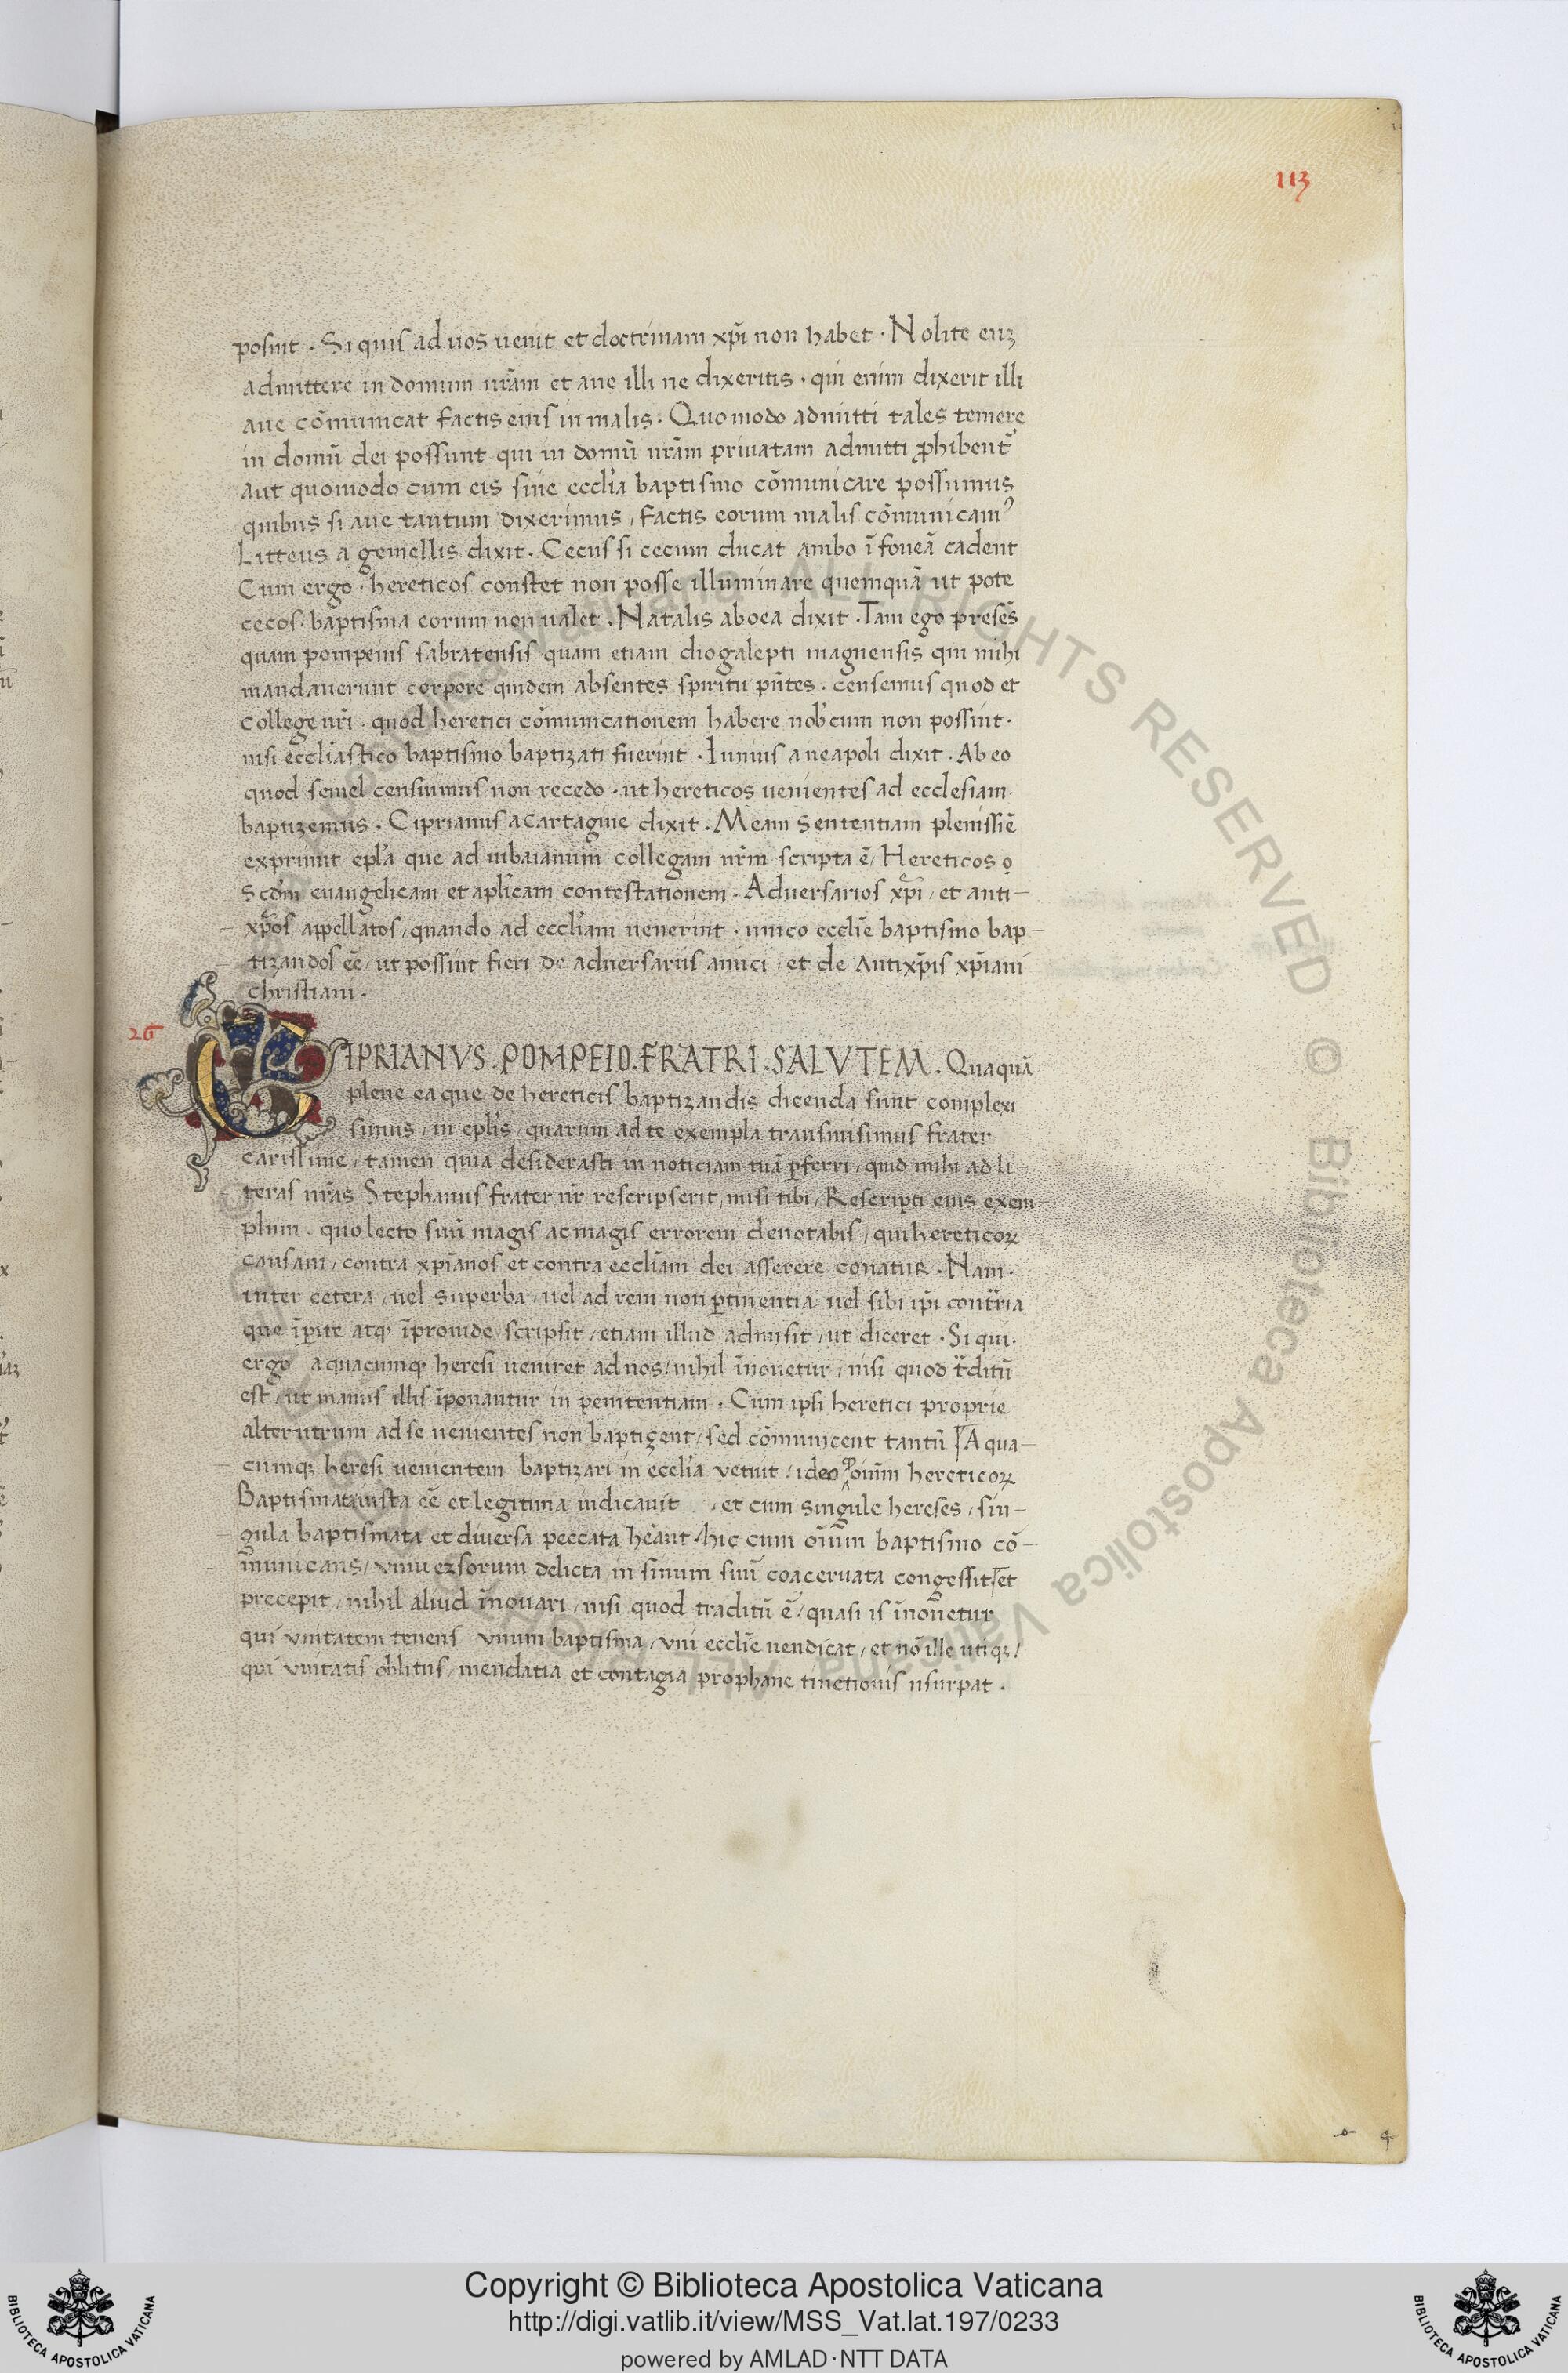 113
posuit . Si quis ad uos uenit et doctrinam xp̄i non habet . Nolite euꝫ
admittere in domum ur̄am et aue illi ne dixeritis . qui enim dixerit illi
aue cōmunicat factis eius in malis . Quomodo admitti tales temere
in domū dei possunt qui in domū nr̄am priuatam admitti ꝓhibent᷑
aut quomodo cum eis sine eccl̄ia baptismo cōmunicare possumus
quibus si aue tantum dixerimus / factis eorum malis cōmunicamꝰ
Litteus a gemellis dixit . Cecus si cecum ducat ambo ī foueā cadent
Cum ergo . hereticos constet non posse illuminare quemquā ut pote
cecos . baptisma eorum non ualet . Natalis aboea dixit . Tam ego presēs
quam pompeius sabratensis quam etiam diogalepti magnensis qui mihi
mandauerunt corpore quidem absentes spiritu pn̄tes . censemus quod et
college nr̄i . quod heretici cōmunicationem habere nob̕cum non possint .
nisi eccl̄iastico baptismo baptizati fuerint . Iunius a neapoli dixit . Ab eo
quod semel censuimus non recedo . ut hereticos uenientes ad ecclesiam .
baptizemus . Ciprianus a cartagine dixit . Meam sententiam plenissiē
exprimit epl̄a que ad iubaianum collegam nr̄m scripta ē / Hereticos
Scd̄m euangelicam et apl̄icam contestationem . Aduersarios xp̄i / et anti–
xp̄os appellatos / quando ad eccl̄iam uenerint . unico eccl̄ie baptismo bap–
tizandos eē / ut possint fieri de aduersariis amici / et de Antixp̄is xp̄iani
christiani .
26
CIPRIANVS . POMPEIO . FRATRI . SALVTEM . Quaquā
plene ea que de hereticis baptizandis dicenda sunt complexi
simus / in epl̄is / quarum ad te exempla transmisimus frater
carissime / tamen quia desiderasti in noticiam tuā ꝑferri / quid mihi ad li–
teras nr̄as Stephanus frater nr̄ rescripserit / misi tibi / Rescripti eius exem–
plum . quo lecto suū magis ac magis errorem denotabis / qui hereticoꝝ
causam / contra xp̄ianos et contra eccl̄iam dei asserere conatur . Nam .
inter cetera / uel superba / uel ad rem non ꝑtinentia uel sibi ip̄i contr̄ria
que īpite atqꝫ īprouide scripsit / etiam illud admisit / ut diceret . Si qui .
ergo a quacumqꝫ heresi ueniret ad uos / nihil īnouetur / nisi quod tr̄ditū
est / ut manus illis īponantur in penitentiam . Cum ipsi heretici proprie
alterutrum ad se uenientes non baptizent / sed cōmunicent tantū A qua–
cumqꝫ heresi uenientem baptizari in eccl̄ia vetuit / ideo oīuīm hereticoꝝ
Baptismata iusta eē et legitima iudicauit / et cum singule hereses / sin–
gula baptismata et diversa peccata hēant / hic cum oīuīm baptismo cō–
municans / vniuersorum delicta in sinum suū coaceruata congessit et
precepit / nihil aliud īnouari / nisi quod traditū ē / quasi is īnouetur
qui vnitatem tenens vnum baptisma / vni eccl̄ie uendicat / et nō ille utiqꝫ /
qui vnitatis oblitus / mendatia et contagia prophane tinctionis usurpat .
© Biblioteca Apostolica Vaticana ALL RIGHTS RESERVED
Copyright © Biblioteca Apostolica Vaticana
http://digi.vatlib.it/view/MSS_Vat.lat.197/0233
powered by AMLAD·NTT DATA
BIBLIOTECA APOSTOLICA VATICANA
BIBLIOTECA APOSTOLICA VATICANA